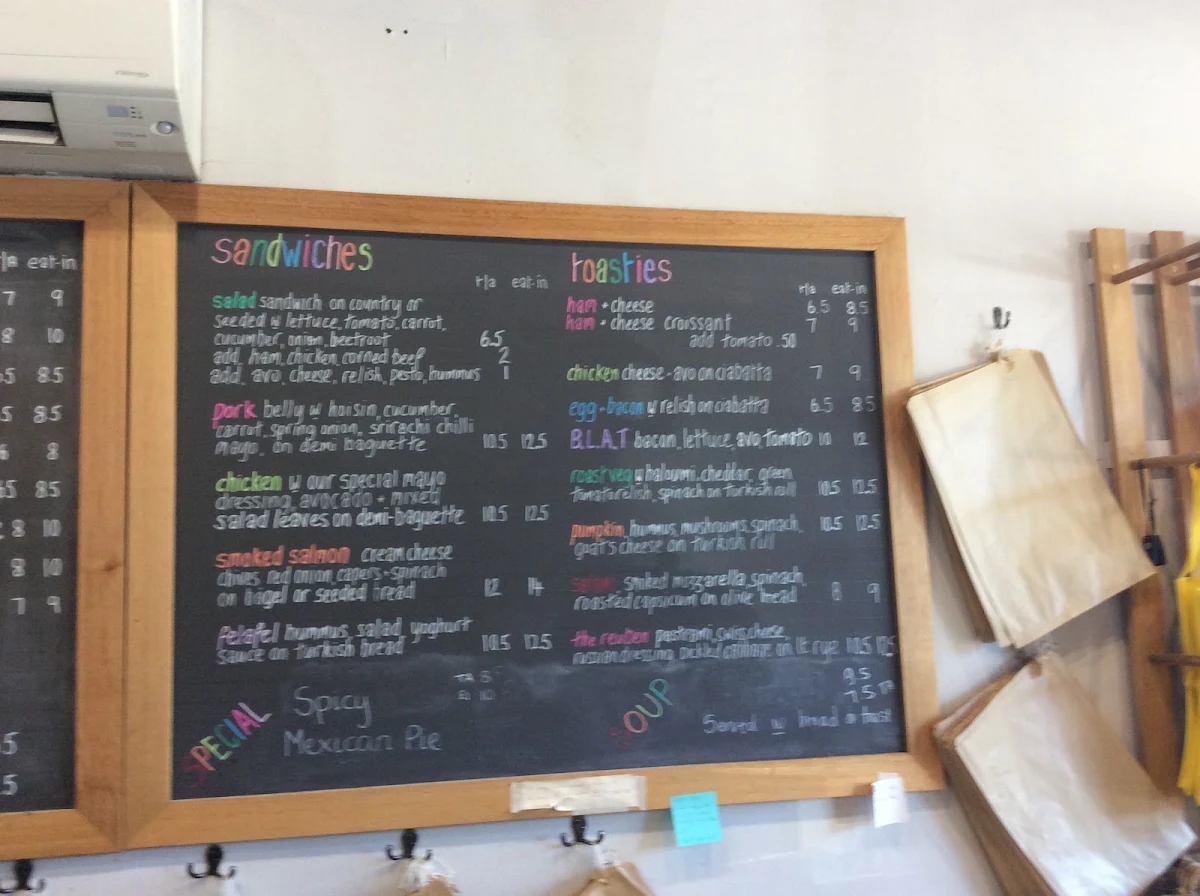 eat-in
7 9
8 10
8.5
8.5
8
8.5
8 10
8 10
7 9
sandwiches
t/a eat-in
salad sandwich on country or
seeded w lettuce, tomato, carrot,
cucumber, onion, beetroot 6.5
add, ham, chicken, corned beef 2
add, avo, cheese, relish, pesto, hummus 1
pork belly w hoisin, cucumber,
carrot, spring onion, srirachi chilli
mayo, on demi baguette 10.5 12.5
chicken w our special mayo
dressing, avocado + mixed
salad leaves on demi-baguette 10.5 12.5
smoked salmon cream cheese
chives, red onion, capers + spinach
on bagel or seeded bread 12 14
felafel hummus, salad, yoghurt
sauce on turkish bread 10.5 12.5
SPECIAL Spicy
Mexican Pie
TA 8
EI 10
toasties
t/a eat-in
ham + cheese 6.5 8.5
ham + cheese croissant 7 9
add tomato .50
chicken cheese - avo on ciabatta 7 9
egg + bacon w relish on ciabatta 6.5 8.5
B.L.A.T bacon, lettuce, avo tomato 10 12
roast veg w haloumi, cheddar, green
tomato relish, spinach on turkish roll 10.5 12.5
pumpkin, hummus, mushrooms, spinach, 10.5 12.5
goat's cheese on turkish roll
salami smoked mozzarella, spinach,
roasted capsicum on olive bread 8 9
the reuben pastrami, swiss cheese,
russian dressing, pickled cabbage on lt rye 10.5 12.5
SOUP
9.5
7.5 TA
Served w bread or toast